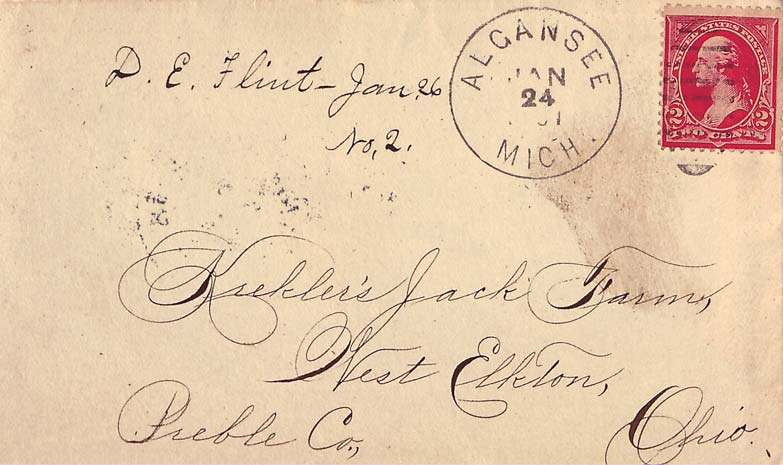 D. E. Flint - Jan. 26
No, 2.
ALGANSEE
JAN
24
MICH.
UNITED STATES POSTAGE
2 2
TWO CENTS
Krekler's Jack Farm,
West Elkton,
Preble Co.,
Ohio.